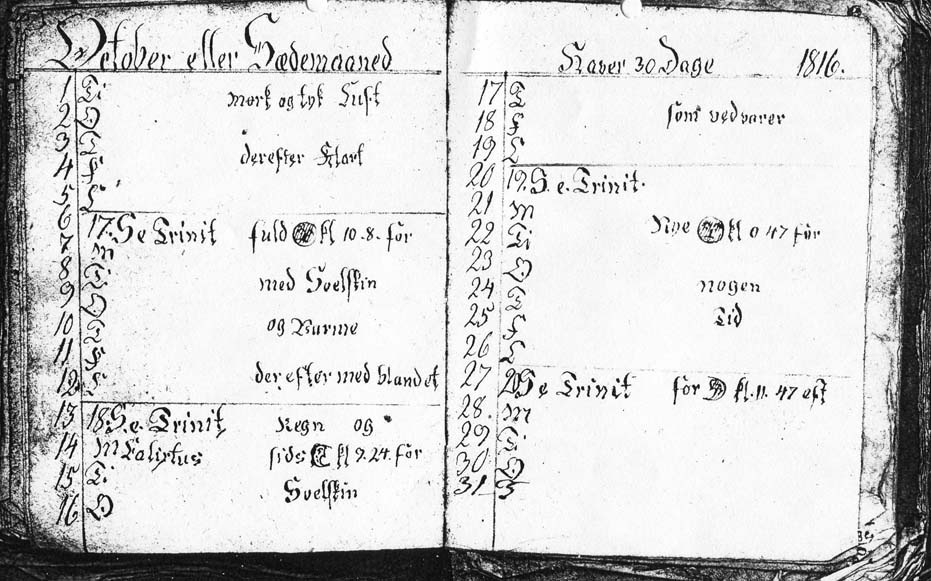 October eller Sædemaaned
1 Ti mørk og tyk Luft
2 O
3 T derefter Klart
4 F
5 L
6 17. S e Trinit fuld kl 10. 8. før
7 M
8 Ti med Soelskin
9 O
10 T og Varme
11 F
12 L derefter med blandet
13 18 S. e. Trinit Regn og
14 M Calixtus sids kl 9. 24. før
15 Ti Soelskin
16 O
Haver 30 Dage 1816.
17 T
18 F som vedvarer
19 L
20 19. S. e. Trinit.
21 M
22 Ti Nye kl 0 47 før
23 O
24 T nogen
25 F Tid
26 L
27 20 S e Trinit før kl. 11. 47 eft
28. M
29 Ti
30 O
31 T